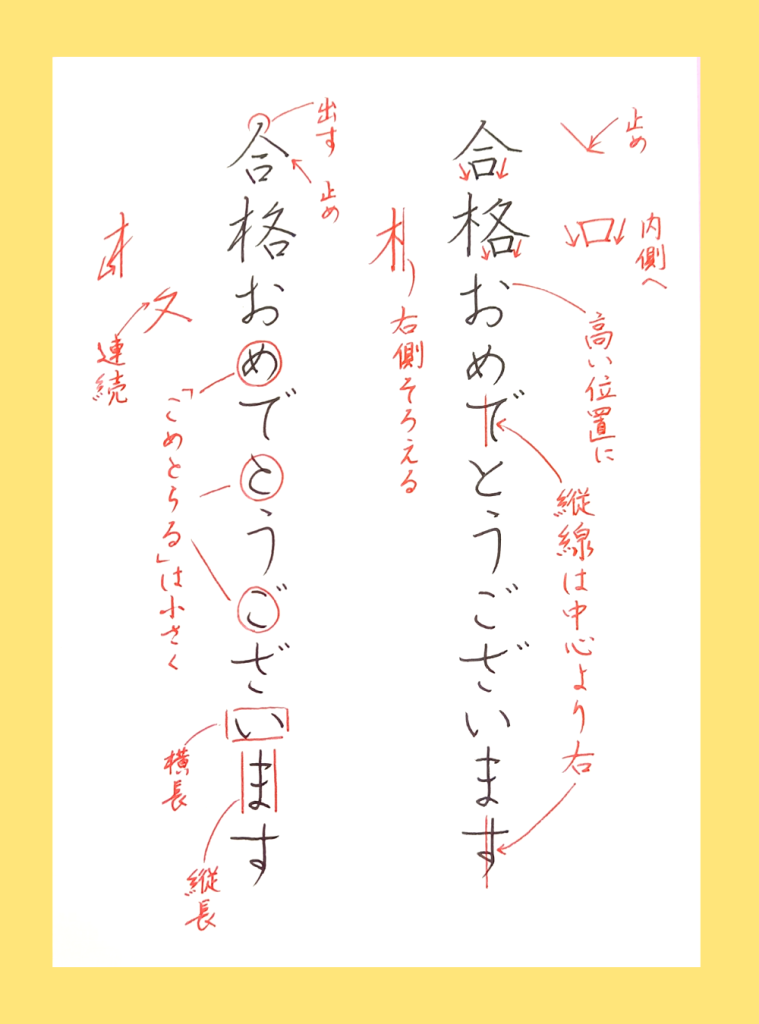 止め
内側へ
合格おめでとうございます
高い位置に
縦線は中心より右
右側そろえる
合格おめでとうございます
出す
止め
連続
「ごめとらる」は小さく
横長
縦長